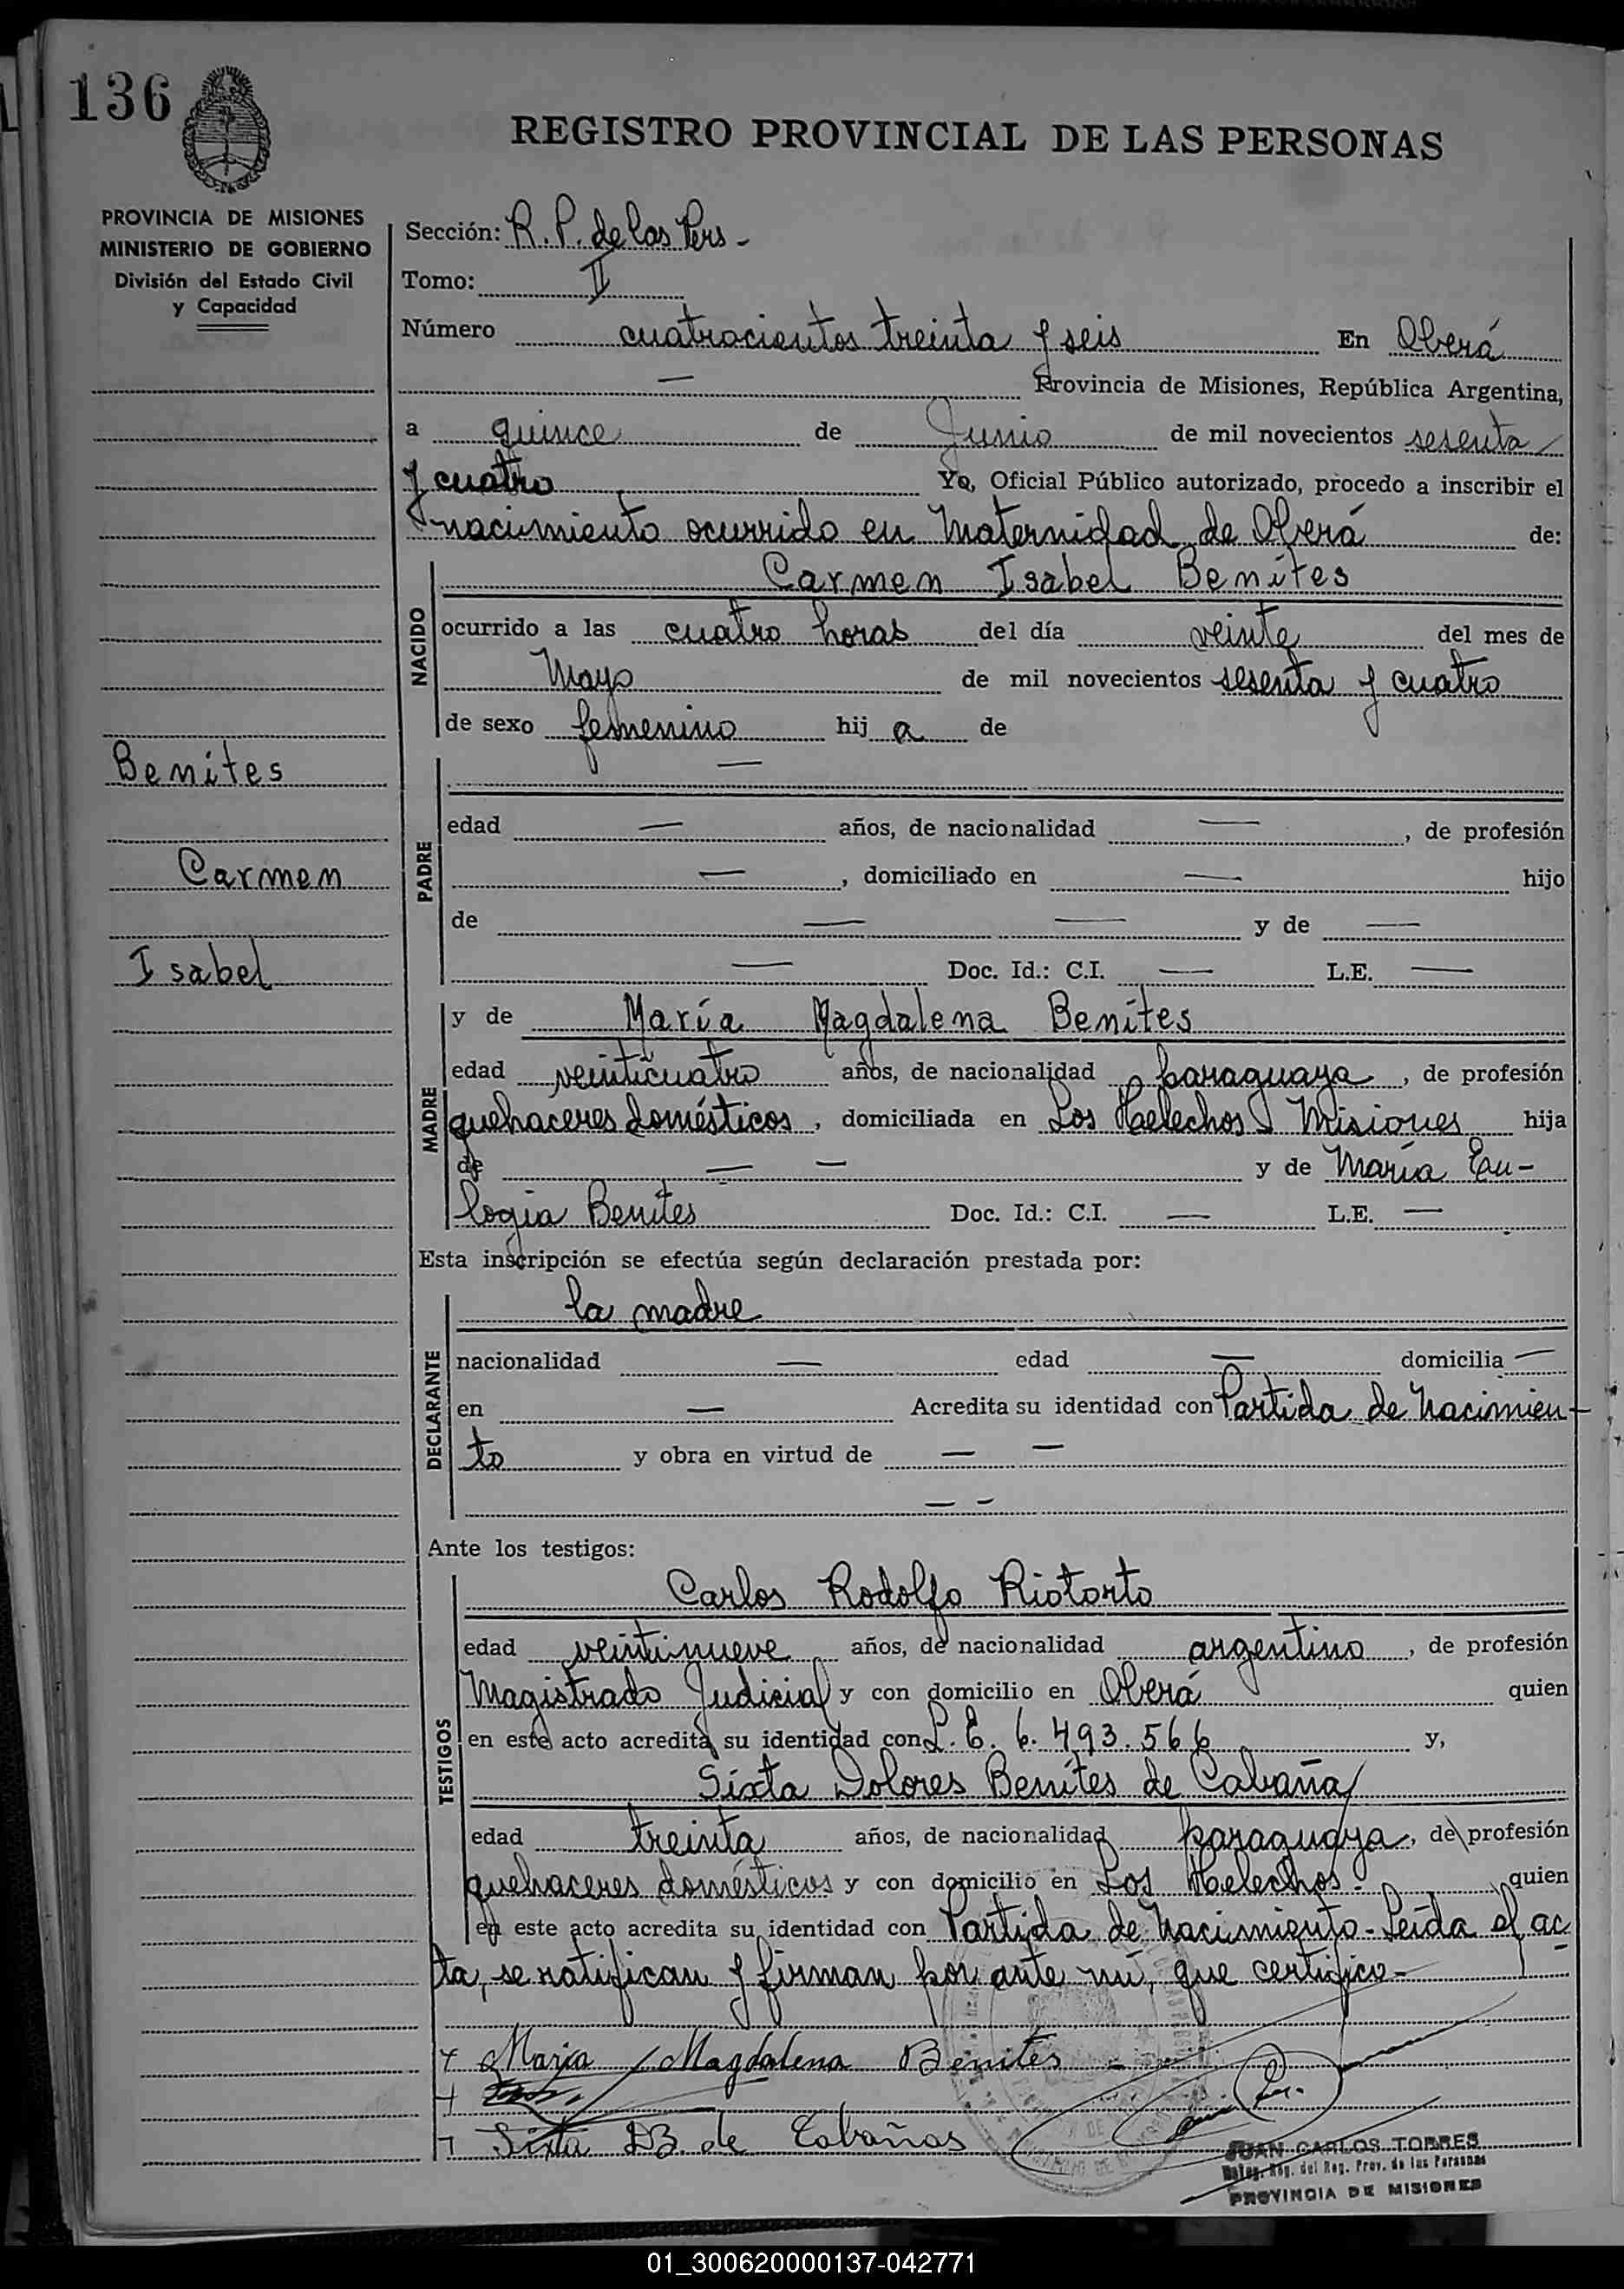 136
REGISTRO PROVINCIAL DE LAS PERSONAS
PROVINCIA DE MISIONES
MINISTERIO DE GOBIERNO
División del Estado Civil
y Capacidad
Sección: R. P. de las Pers -
Tomo: II
Número cuatrocientos treinta y seis En Oberá
— Provincia de Misiones, República Argentina,
a quince de Junio de mil novecientos sesenta
y cuatro Yo, Oficial Público autorizado, procedo a inscribir el
nacimiento ocurrido en Maternidad de Oberá de:
Carmen Isabel Benites
NACIDO
ocurrido a las cuatro horas del día veinte del mes de
Mayo de mil novecientos sesenta y cuatro
de sexo femenino hij a de
Benites
Carmen
Isabel
—
PADRE
edad — años, de nacionalidad —, de profesión
—, domiciliado en — hijo
de — — y de —
— Doc. Id.: C.I. — L.E. —
y de María Magdalena Benites
MADRE
edad veinticuatro años, de nacionalidad paraguaya, de profesión
quehaceres domésticos, domiciliada en Los Helechos Misiones hija
de — — y de María Eu-
logia Benites Doc. Id.: C.I. — L.E. —
Esta inscripción se efectúa según declaración prestada por:
la madre
DECLARANTE
nacionalidad — edad — domicilia —
en — Acredita su identidad con Partida de Nacimien-
to y obra en virtud de — —
— —
Ante los testigos:
Carlos Rodolfo Riotorto
TESTIGOS
edad veintinueve años, de nacionalidad argentino, de profesión
Magistrado Judicial y con domicilio en Oberá quien
en este acto acredita su identidad con L. E. 6. 493. 566 y,
Sixta Dolores Benites de Cabaña
edad treinta años, de nacionalidad paraguaya, de profesión
quehaceres domésticos y con domicilio en Los Helechos - quien
en este acto acredita su identidad con Partida de Nacimiento - Leída el ac
ta, se ratifican y firman por ante mí, que certifico -
Maria Magdalena Benites -
Sixta D B. de Cabañas
JUAN CARLOS TORRES
Reg. del Reg. Prov. de las Personas
PROVINCIA DE MISIONES
01_300620000137-042771